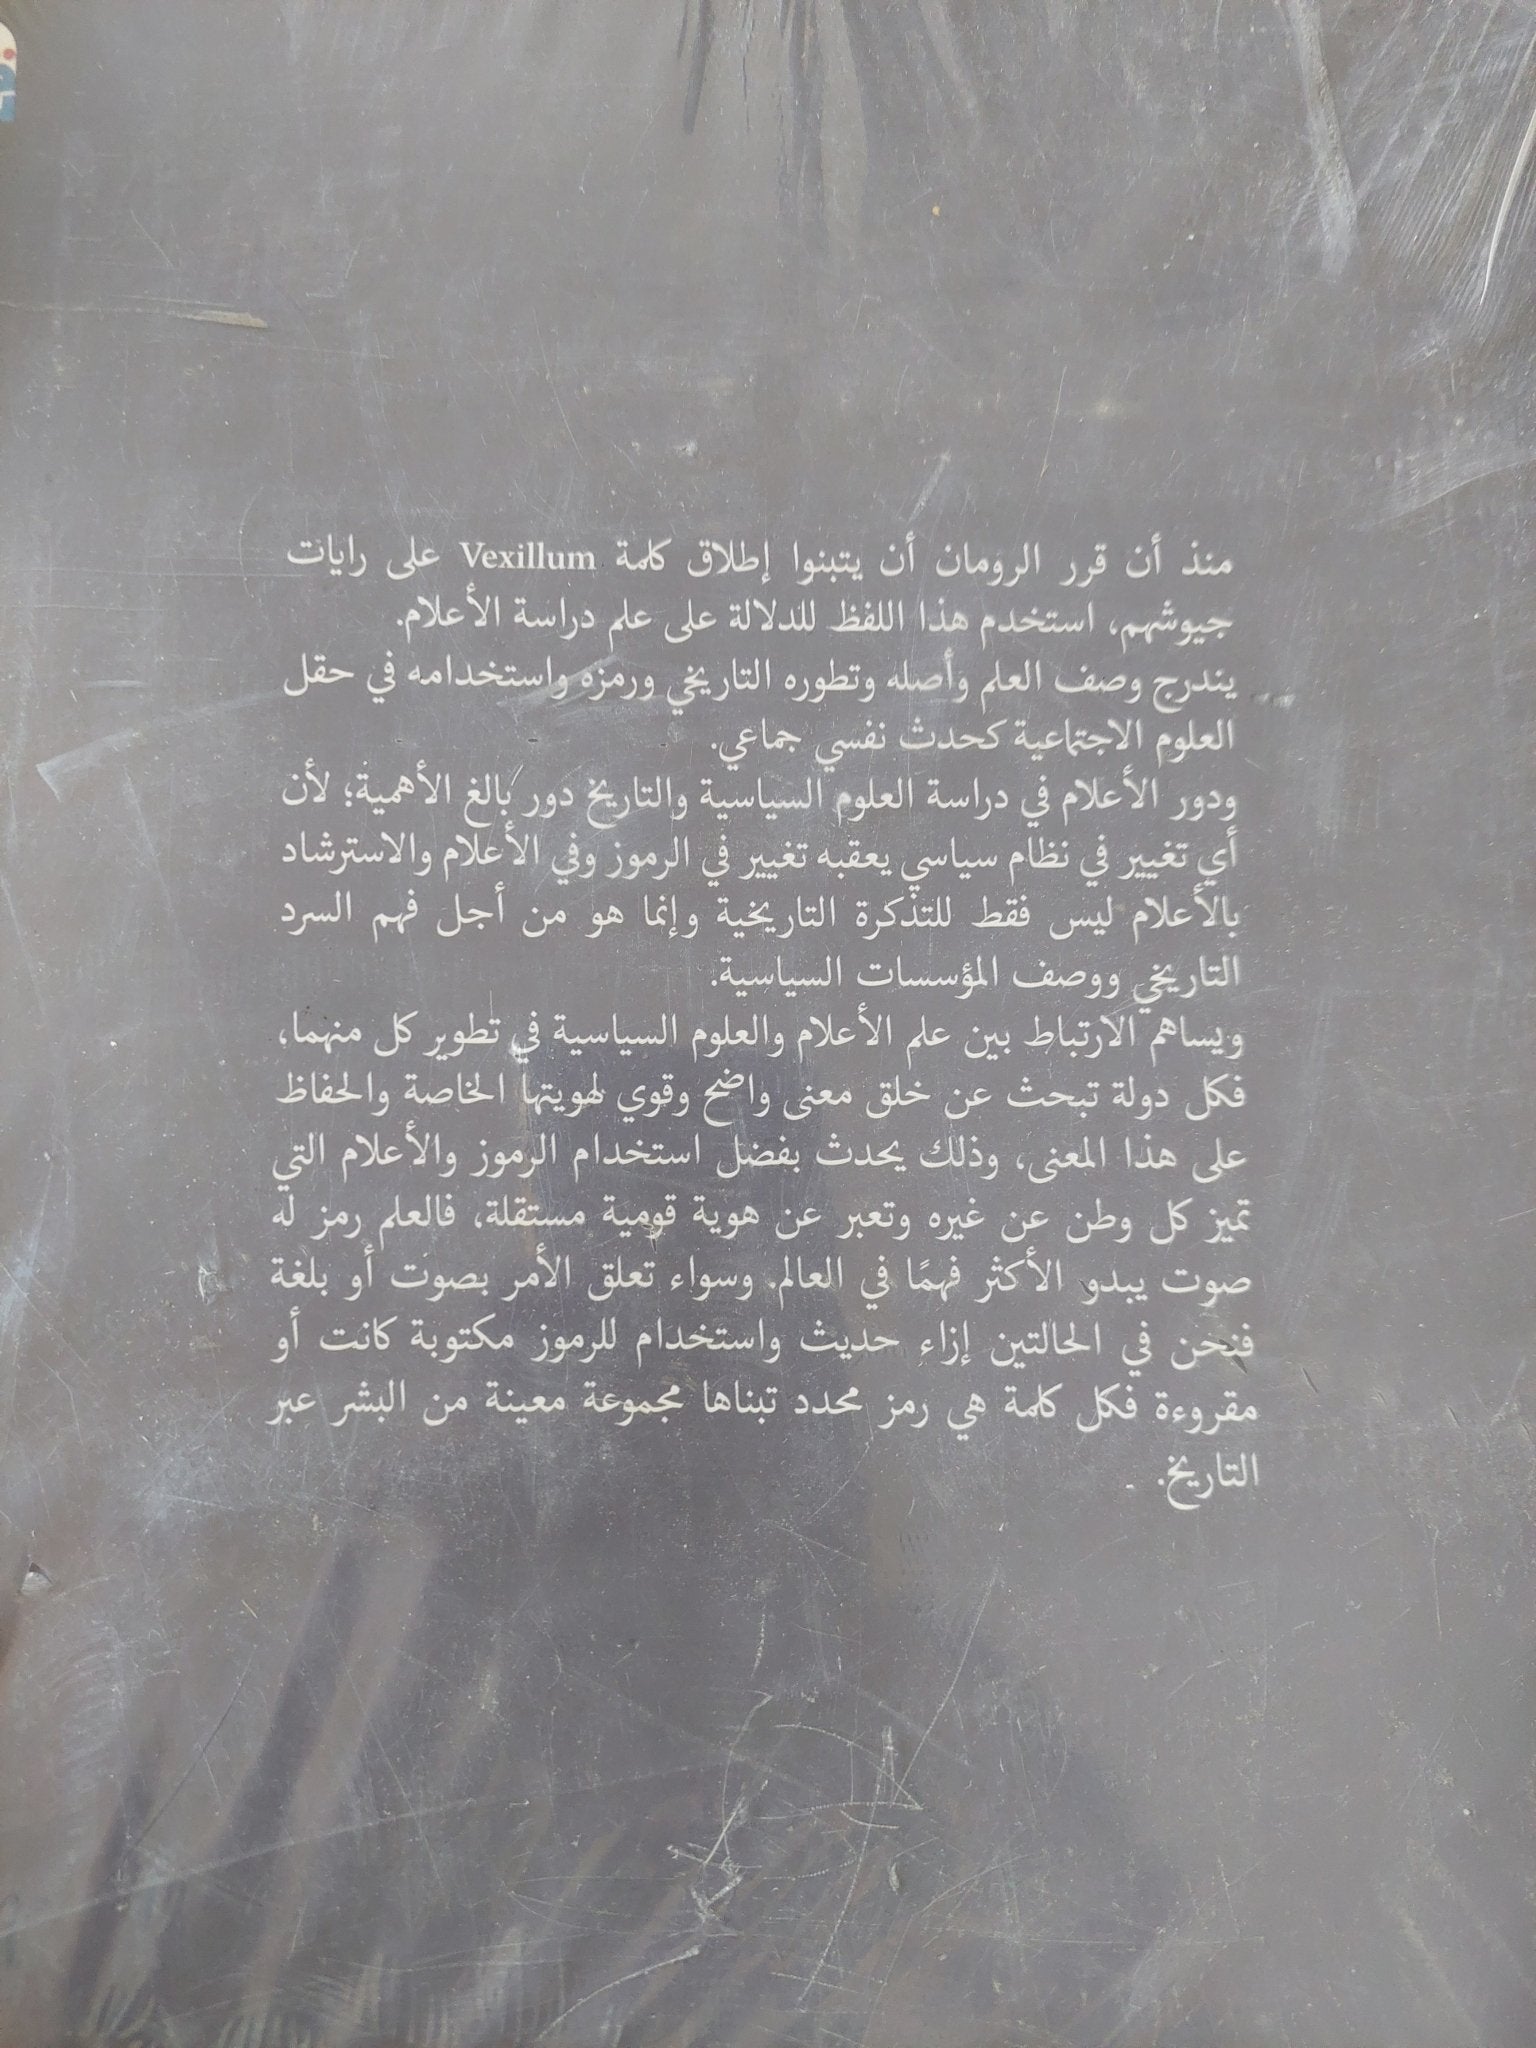 منذ أن قرر الرومان أن يتبنوا إطلاق كلمة Vexillum على رايات
جيوشهم، استخدم هذا اللفظ للدلالة على علم دراسة الأعلام.
يندرج وصف العلم وأصله وتطوره التاريخي ورمزه واستخدامه في حقل
العلوم الاجتماعية كحدث نفسي جماعي.
ودور الأعلام في دراسة العلوم السياسية والتاريخ دور بالغ الأهمية؛ لأن
أي تغيير في نظام سياسي يعقبه تغيير في الرموز وفي الأعلام والاسترشاد
بالأعلام ليس فقط للتذكرة التاريخية وإنما هو من أجل فهم السرد
التاريخي ووصف المؤسسات السياسية.
ويساهم الارتباط بين علم الأعلام والعلوم السياسية في تطوير كل منهما،
فكل دولة تبحث عن خلق معنى واضح وقوي لهويتها الخاصة والحفاظ
على هذا المعنى، وذلك يحدث بفضل استخدام الرموز والأعلام التي
تميز كل وطن عن غيره وتعبر عن هوية قومية مستقلة، فالعلم رمز له
صوت يبدو الأكثر فهمًا في العالم. وسواء تعلق الأمر بصوت أو بلغة
فنحن في الحالتين إزاء حديث واستخدام للرموز مكتوبة كانت أو
مقروءة فكل كلمة هي رمز محدد تبناها مجموعة معينة من البشر عبر
التاريخ.